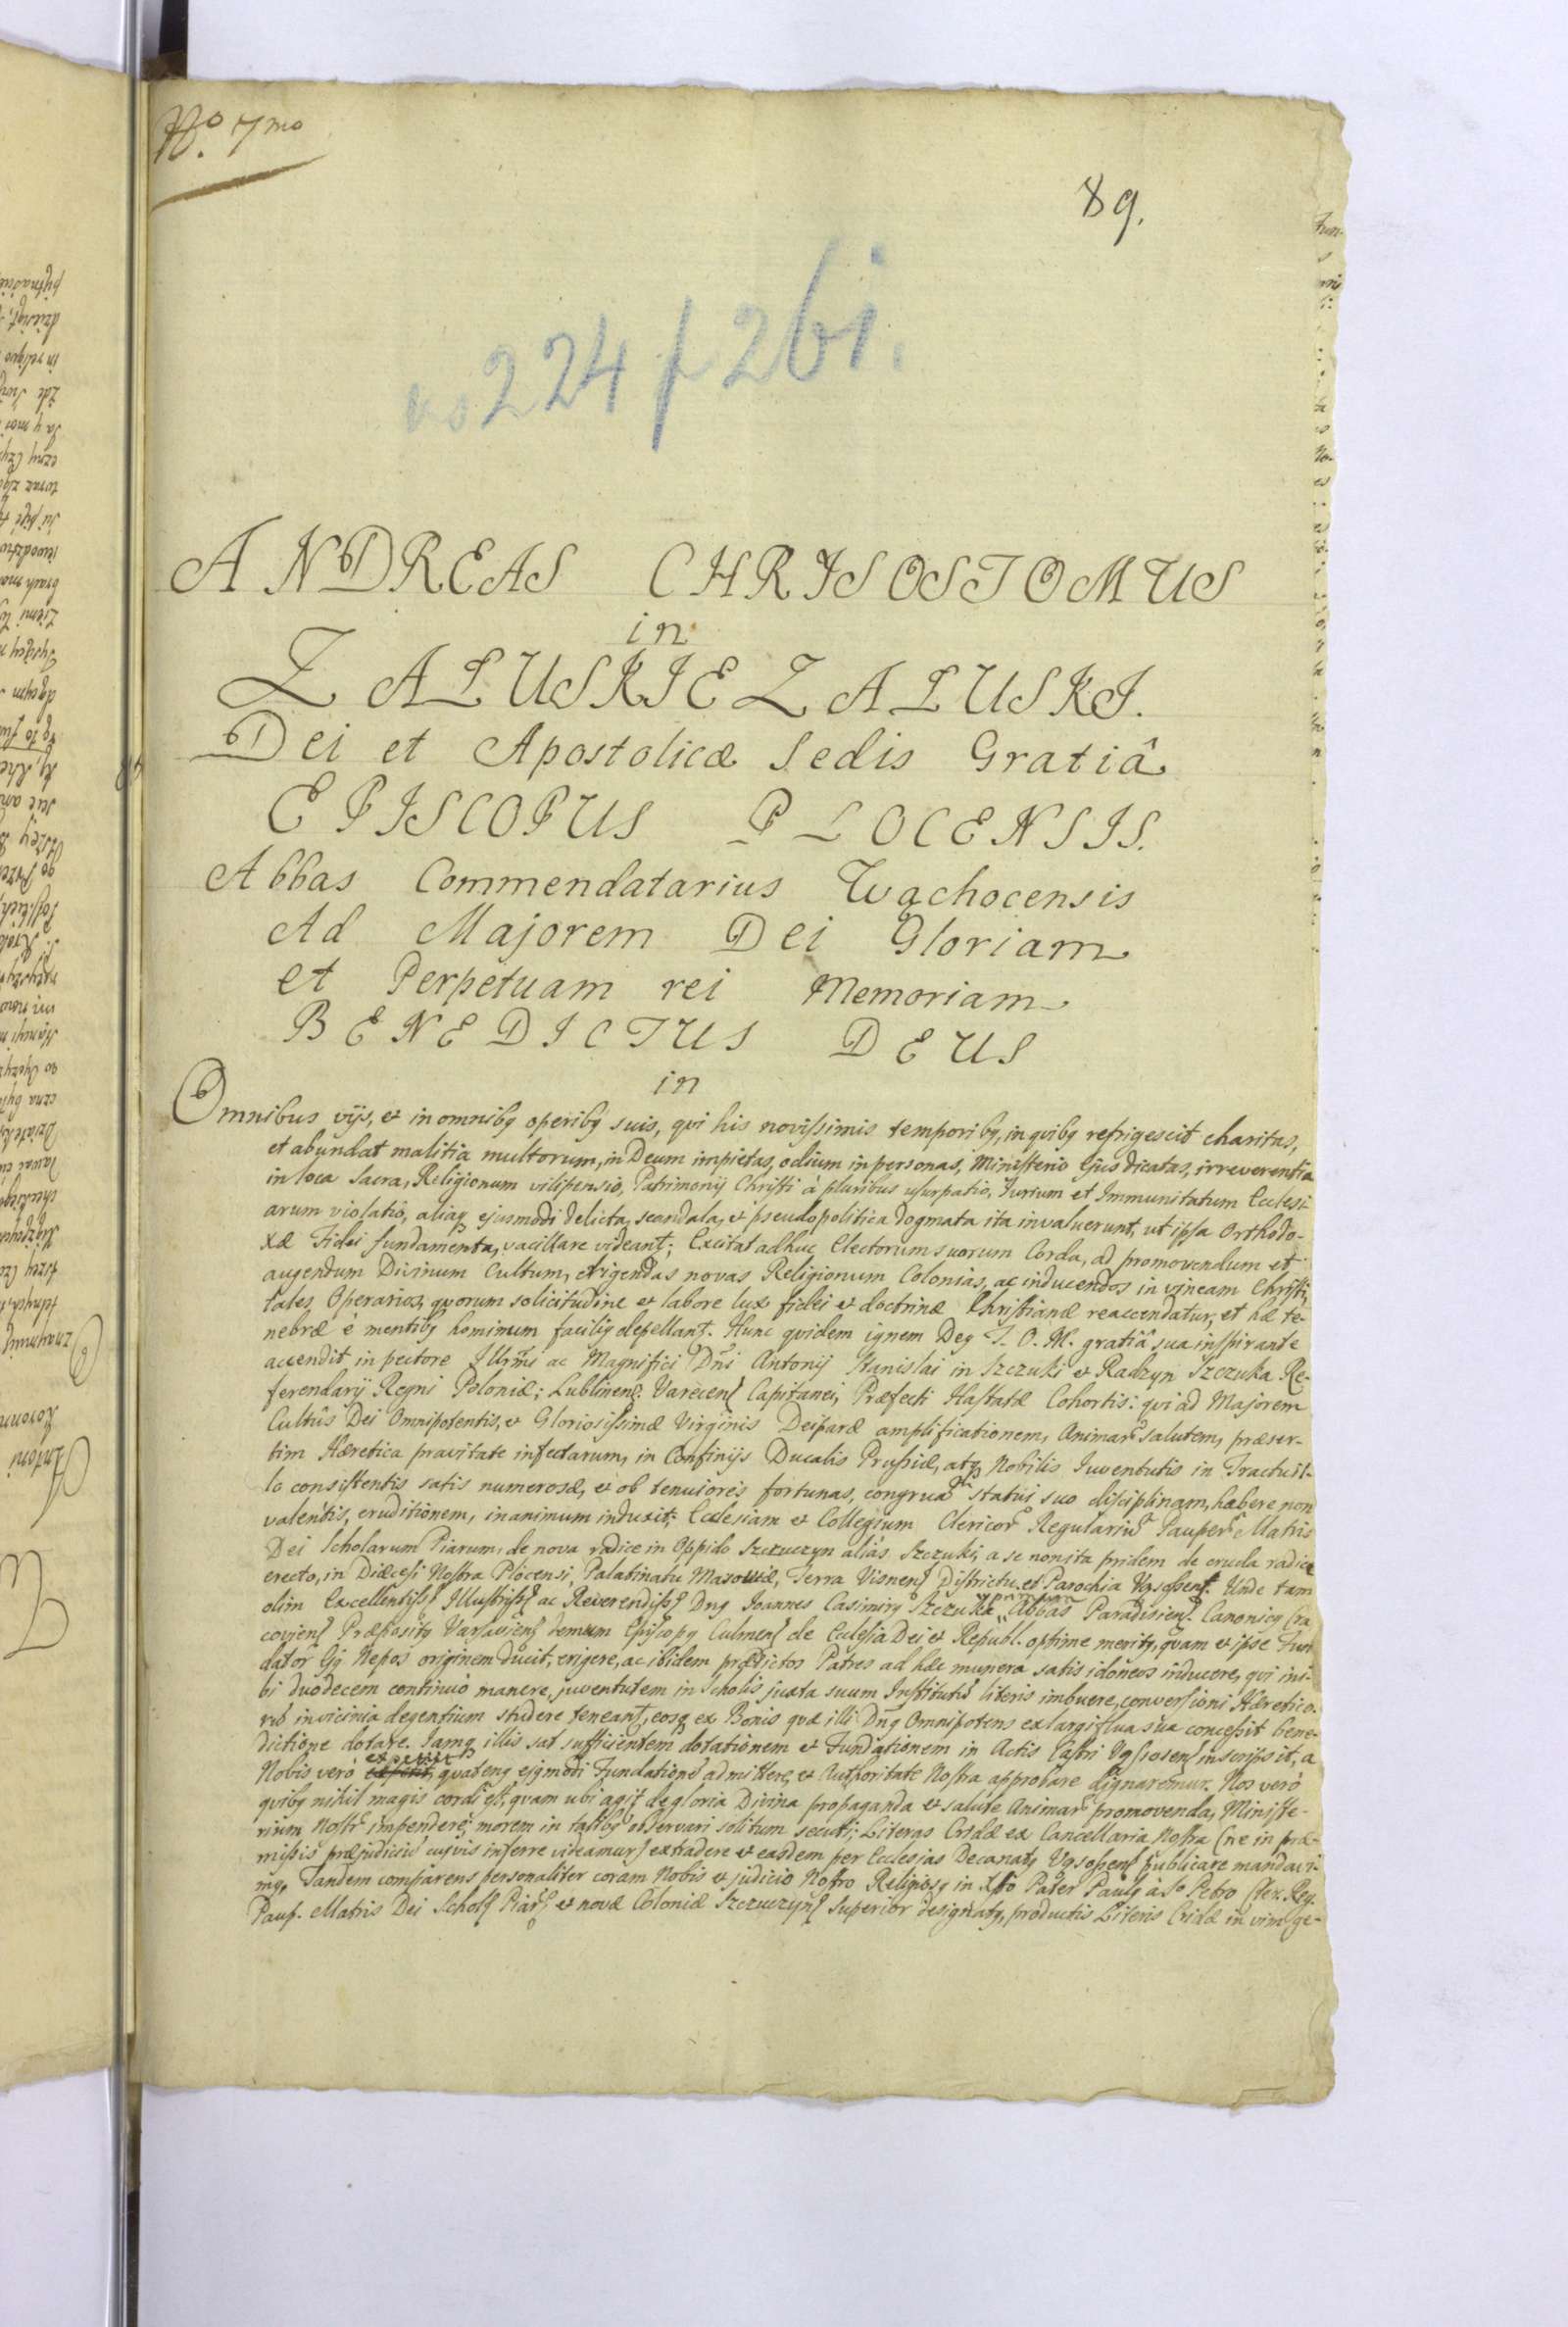 No. 7mo
89.
no 224 f 261.
ANDREAS CHRISOSTOMUS
in
ZAŁUSKIE ZAŁUSKI.
Dei et Apostolicæ Sedis Gratiâ
EPISCOPUS PŁOCENSIS.
Abbas Commendatarius Wąchocensis
Ad Majorem Dei Gloriam
et Perpetuam rei Memoriam
BENEDICTUS DEUS
in
Omnibus vijs, et in omnibq operibq suis, qvi his novissimis temporibq, in qvibq refrigescit charitas,
et abundat malitia multorum, in Deum impietas, odium in personas, Ministerio Ejus dicatas, irreverentia
in loca Sacra, Religionum vilipensio, Patrimonij Christi à pluribus usurpatio, Jurium et Immunitatum Ecclesi-
arum violatio, aliaq ejusmodi delicta, scandala, et pseudopolitica dogmata ita invaluerunt, ut ipsa Orthodo-
xæ Fidei fundamenta, vacillare videant; Excitat adhuc Electorum suorum Corda, ad promovendum et
augendum Divinum Cultum, erigendas novas Religionum Colonias, ac inducendos in vineam Christi,
tales Operarios, qvorum solicitudine et labore lux fidei et doctrinæ Christianæ reaccendatur, et hæ te-
nebræ è mentibq hominum faciliq depellant. Hunc qvidem ignem Deq T. O. M. gratiâ sua inspirante
accendit in pectore Illrmi ac Magnifici Dni Antonij Stanislai in Szczuki et Radzyn Szczuka Re-
ferendarij Regni Poloniæ; Lublinens: Varecens Capitanei, Præfecti Hastatæ Cohortis: qvi ad Majorem
Cultûs Dei Omnipotentis, et Gloriosissimæ Virginis Deiparæ amplificationem, Animar salutem, præser-
tim Hæretica pravitate infectarum, in Confinijs Ducalis Prussiæ, atq Nobilis Juventutis in Tractu il-
lo consistentis satis numerosæ, et ob tenuioris fortunas, congrua statui suo disciplinam, habere non
valentis, eruditionem, in animum induxit; Ecclesiam et Collegium Clericor Regulariu Pauper Matris
Dei Scholarum Piarum, de nova radice in Oppido Szczuczyn aliàs Szczuki, a se non ita pridem de cruda radice
erecto, in Diæcesi Nostra Płocensi, Palatinatu Masoviæ, Terra Visnens Districtu et Parochia Vąsosens. Unde tam
olim Excellentiss Illustriss ac Reverendiss Dnq Joannes Casimirq Szczuka Abbas Paradisiens. Canonicq Cra
coviens Præpositq Varsaviens demum Episcopq Culmens de Ecclesia Dei et Republ. optime meritq, qvam et ipse Fun
dator Ejq Nepos originem ducit, erigere, ac ibidem prædictos Patres ad hæc munera satis idoneos inducere, qvi ini-
bi duodecem continuò manere, juventutem in Scholis juxta suum Institutu literis imbuere, conversioni Hæretico-
ru in vicinia degentium studere teneant, eosq ex Bonis qvæ illi Dnq Omnipotens ex largiflua sua concessit bene-
dictione dotare. Jamq illis sat sufficientem dotationem et Fundationem in Actis Castri Vąsosens inscripsit, a
Nobis verò expetiit qvatenq ejqmodi Fundatione admittere, et Authoritate Nostra approbare dignaremur. Nos verò
qvibq nihil magis cordi est, qvam ubi agit de gloria Divina propaganda et salute Animar promovenda, Ministe-
rium Nostr impendere; morem in talibq observari solitum secuti; Literas Cridæ ex Cancellaria Nostra (ne in præ-
missis præjudiciu cuivis inferre videamur) extradere et easdem per Ecclesias Decanatq Vąsosens publicare mandavi-
mq, Tandem comparens personaliter coram Nobis et judicio Nostro Religiosq in Xsto Pater Paulq à So Petro Cler. Reg.
Paup. Matris Dei Schol Piar et novæ Coloniæ Szczuczyns Superior designatq, productis Literis Cridæ in vim ge-